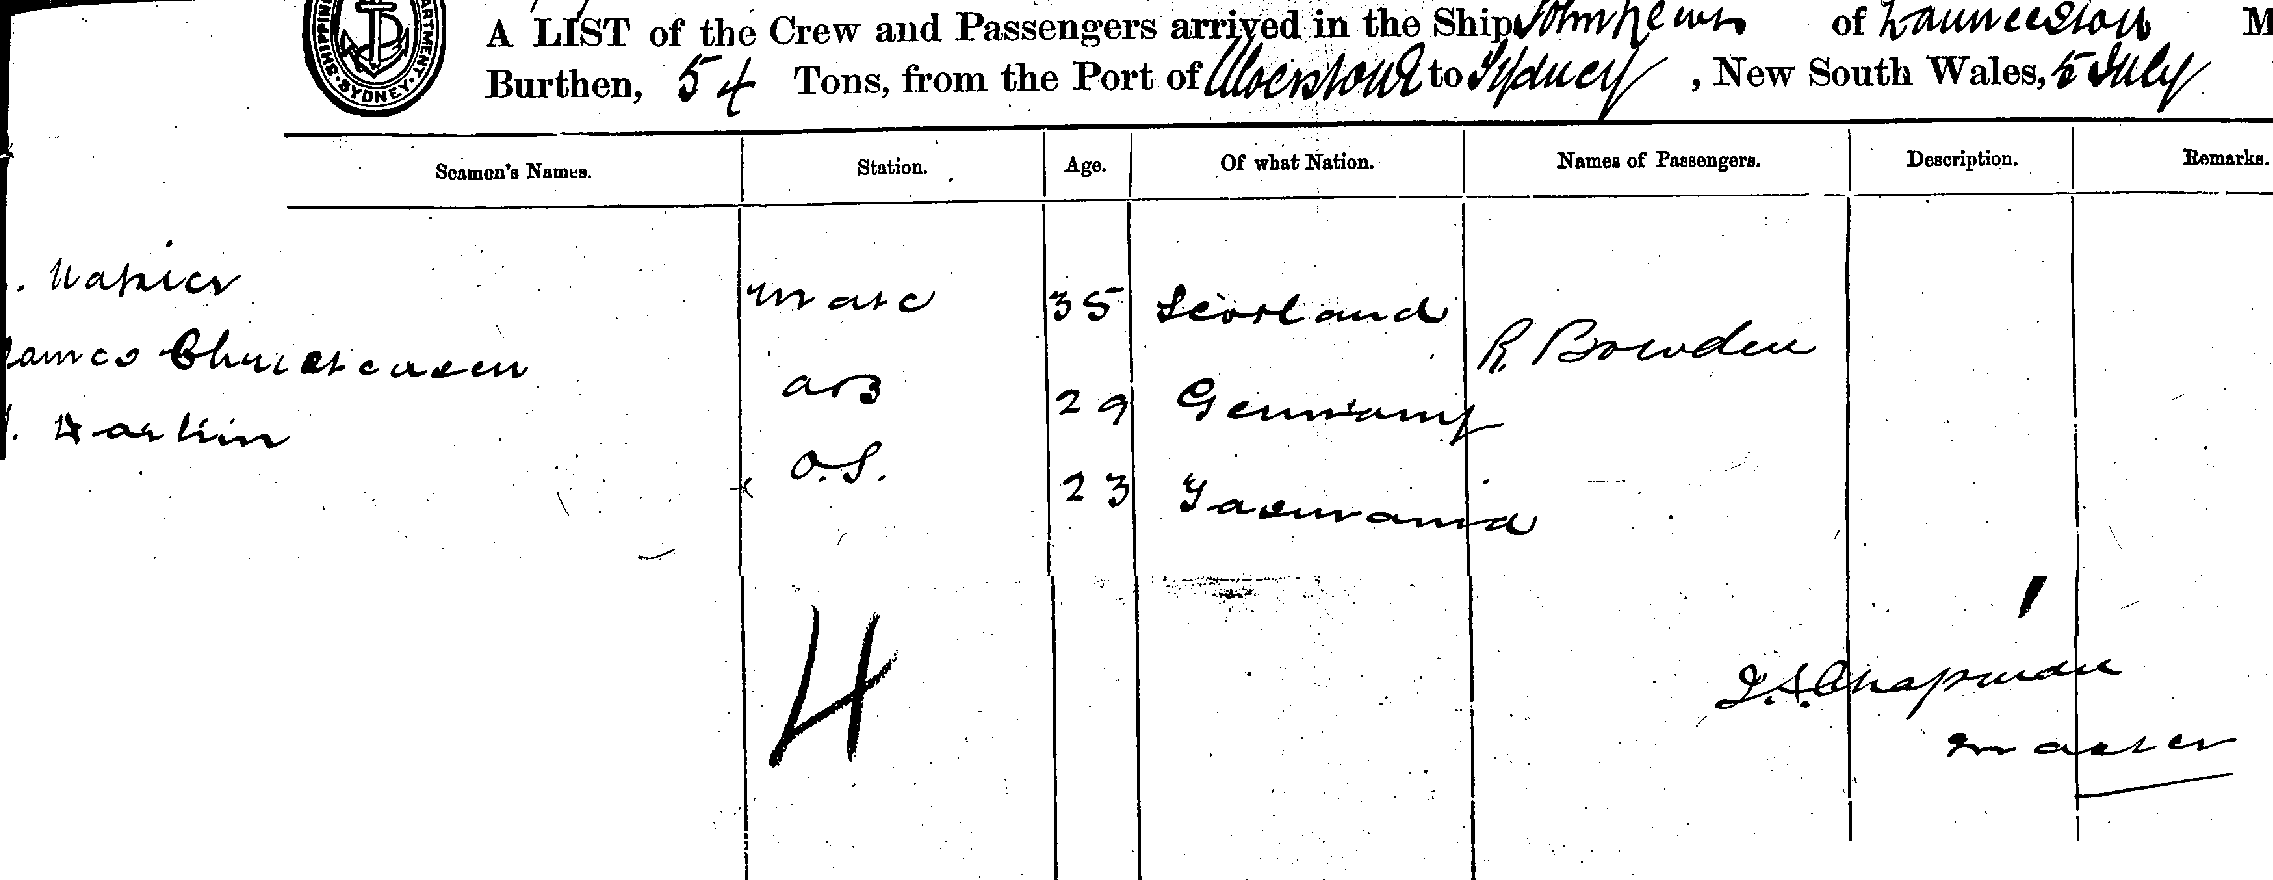 SHIPPIN ARTMENT. SYDNEY
A LIST of the Crew and Passengers arrived in the Ship John Lewis of Launceston M
Burthen, 54 Tons, from the Port of Ulverstone to Sydney, New South Wales, 5 July
Seamen's Names. Station. Age. Of what Nation. Names of Passengers. Description. Remarks.
. Napier Mate 35 Scotland R. Bowden
James Christensen AB 29 Germany
. Larkin O.S. 23 Tasmania
4 1
Chapman
Master